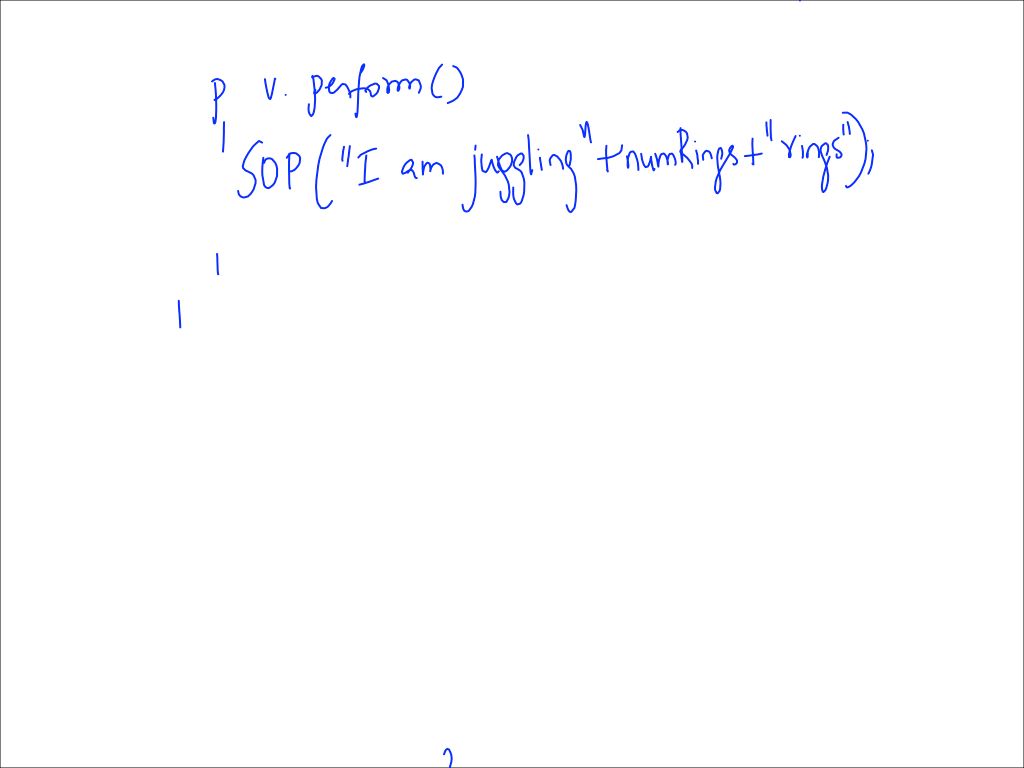 p v. perform()
| SOP("I am juggling"+numRings+"rings");
|
|